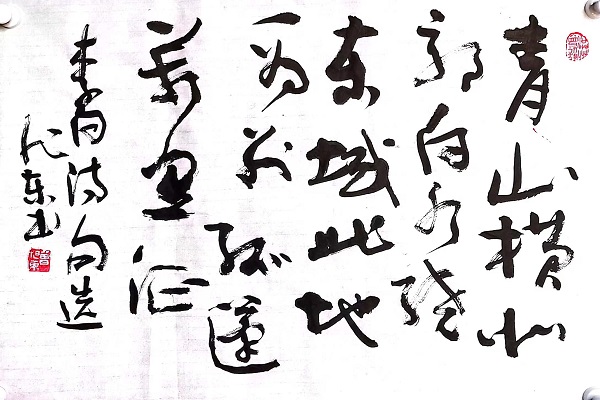 青山横北
郭白水绕
东城此地
一为别孤蓬
萬里征
李白诗句选
旭东书